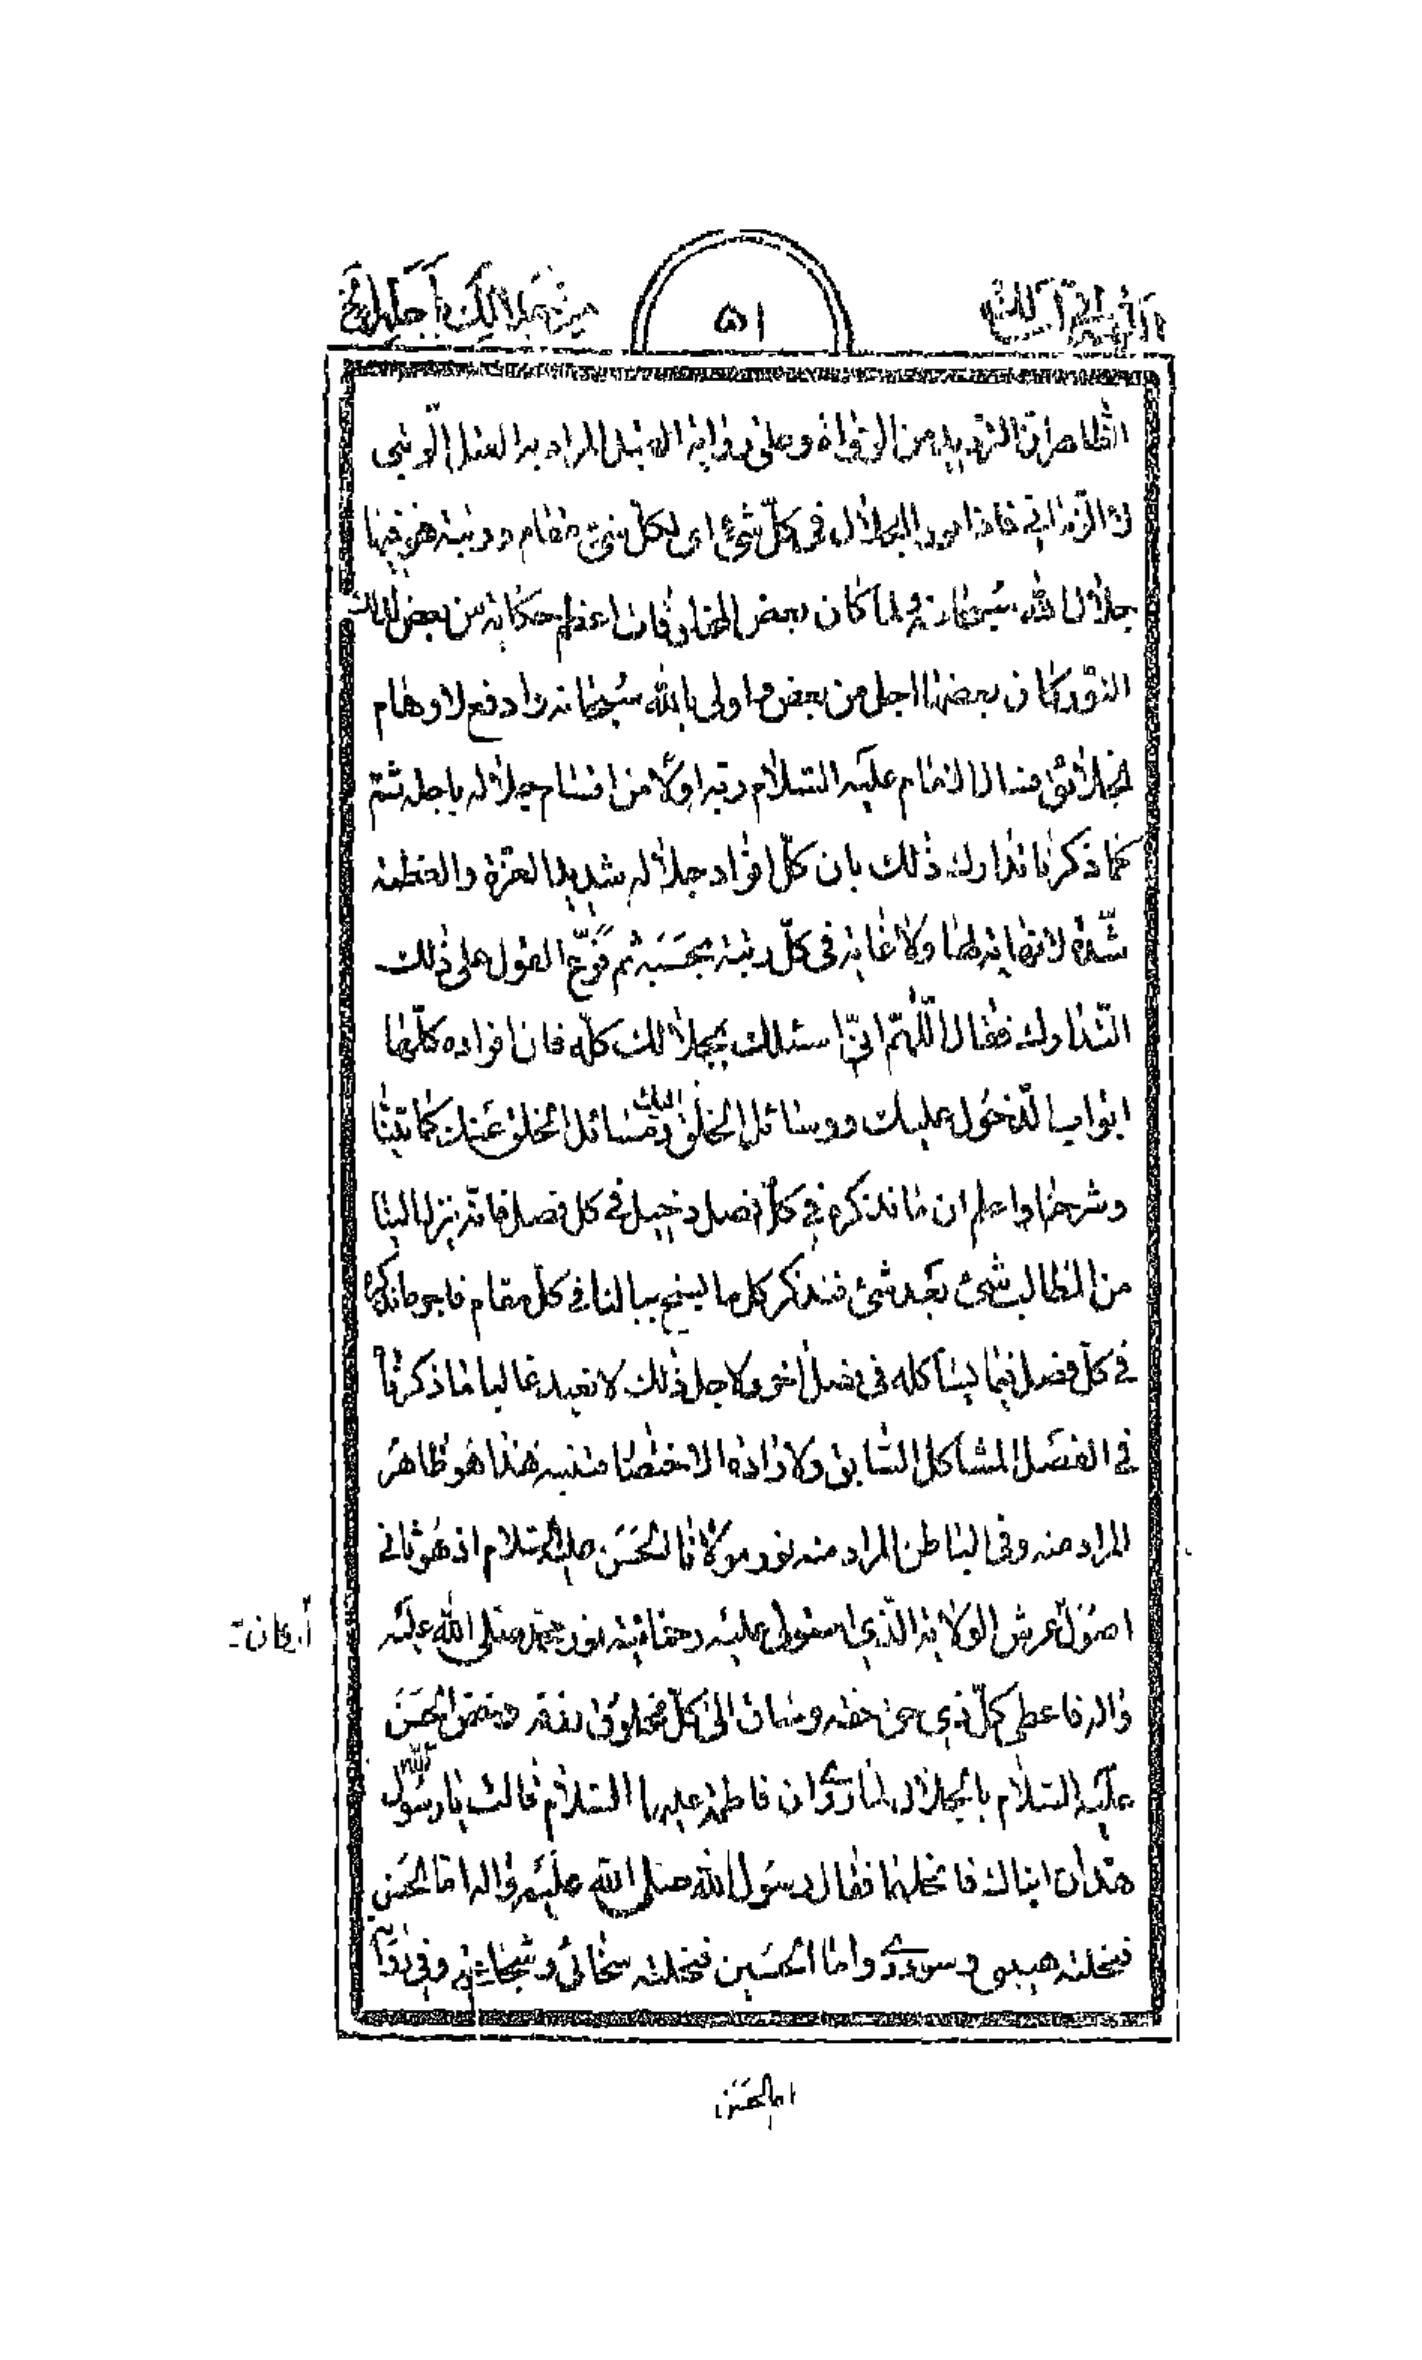 من جلالك باجله الخ
٥١
اللهم انى اسئلك
الظاهر ان الترديد من الرواة وعلى رواية المراد به
فى كل شئ اى لكل شئ مقام ورتبة هو فيها
جلال الله سبحانه ولما كان بعض المخلوقات اعظم حكاية من بعض لذلك
النور كان بعضها اجل من بعض واولى بالله سبحانه وادفع لاوهام
الخلائق فسال الامام عليه السلام ربه اولا من اقسام جلاله باجله ثم
كما ذكرنا تدارك ذلك بان كل افراد جلاله شديد العزة والعظمة
شدة لا نهاية لها ولا غاية فى كل رتبة بحسبه ثم فرّع القول على ذلك
التدارك فقال اللهم انى اسئلك بجلالك كله فان افراده كلها
ابواب الدخول عليك ووسائل الخلق اليك ومسائل الخلق عنك كما بينا
وشرحنا واعلم ان ما نذكره فى كل فصل دخيل فى كل فصل فانه ينزل الينا
من المطالب شئ بعد شئ فنذكر كل ما يسنح ببالنا فى كل مقام فاجر ما نذكره
فى كل فصل فيما يشاكله فى فصل اخر ولاجل ذلك لا نعيد غالبا ما ذكرنا
فى الفصل المشاكل السابق ولارادة الاختصار فتنبه هذا هو ظاهر
المراد منه وفى الباطن المراد منه نور مولانا الحسن عليه السلام اذ هو ثانى
اركان
اصول عرش الولاية الذى استولى عليه رحمانية نور محمد صلى الله عليه
واله فاعطى كل ذى حق حقه وساق الى كل مخلوق رزقه وخص الحسن
عليه السلام بالجلال لما روى ان فاطمة عليها السلام قالت يا رسول الله
هذان ابناك فانحلهما فقال رسول الله صلى الله عليه واله اما الحسن
فنحلته هيبتى وسوددى واما الحسين فنحلته سخائى وشجاعتى وفى رواية
اما الحسن